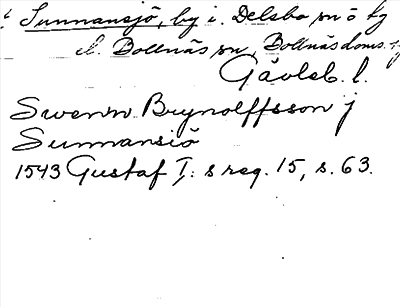 Sunnansjö, by i. Delsbo sn ö. kg
el. Bollnäs sn Bollnäs doms.
Gävleb. l.
Swenn Brynolffsson j
Sunnansiö
1543 Gustaf I: s reg. 15, s. 63.